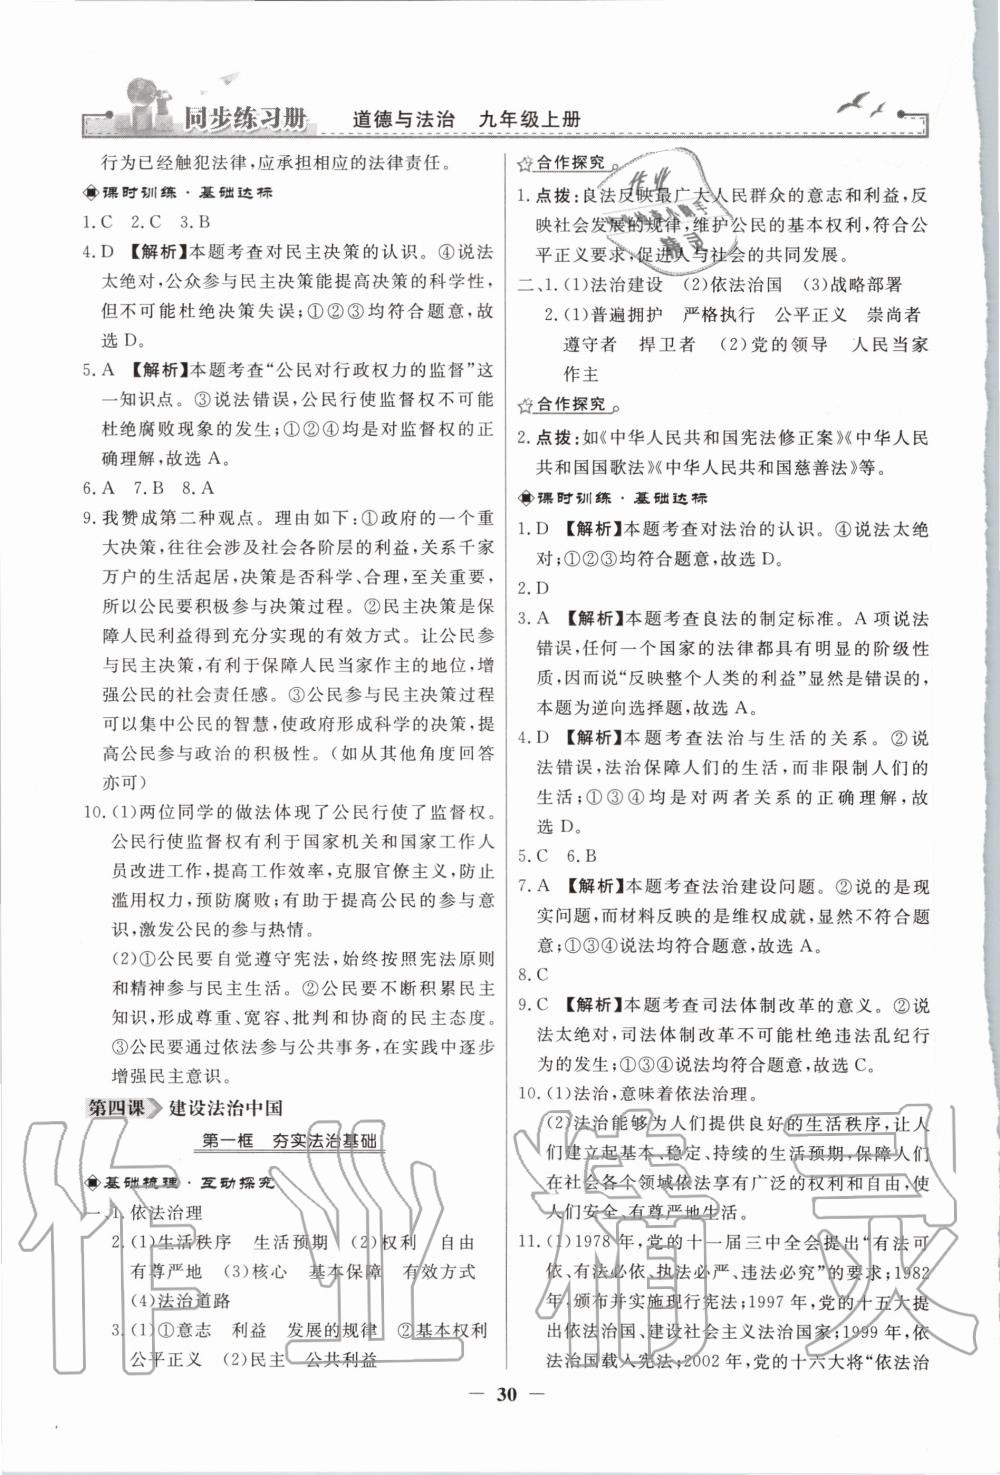 同步练习册 道德与法治 九年级上册
行为已经触犯法律,应承担相应的法律责任。
课时训练·基础达标
1.C 2.C 3.B
4.D 【解析】本题考查对民主决策的认识。④说法
太绝对,公众参与民主决策能提高决策的科学性,
但不可能杜绝决策失误;①②③均符合题意,故
选D。
5.A 【解析】本题考查“公民对行政权力的监督”这
一知识点。③说法错误,公民行使监督权不可能
杜绝腐败现象的发生;①②④均是对监督权的正
确理解,故选A。
6.A 7.B 8.A
9.我赞成第二种观点。理由如下:①政府的一个重
大决策,往往会涉及社会各阶层的利益,关系千家
万户的生活起居,决策是否科学、合理,至关重要,
所以公民要积极参与决策过程。②民主决策是保
障人民利益得到充分实现的有效方式。让公民参
与民主决策,有利于保障人民当家作主的地位,增
强公民的社会责任感。③公民参与民主决策过程
可以集中公民的智慧,使政府形成科学的决策,提
高公民参与政治的积极性。(如从其他角度回答
亦可)
10.(1)两位同学的做法体现了公民行使了监督权。
公民行使监督权有利于国家机关和国家工作人
员改进工作,提高工作效率,克服官僚主义,防止
滥用权力,预防腐败;有助于提高公民的参与意
识,激发公民的参与热情。
(2)①公民要自觉遵守宪法,始终按照宪法原则
和精神参与民主生活。②公民要不断积累民主
知识,形成尊重、宽容、批判和协商的民主态度。
③公民要通过依法参与公共事务,在实践中逐步
增强民主意识。
第四课 建设法治中国
第一框 夯实法治基础
基础梳理·互动探究
一、1.依法治理
2.(1)生活秩序 生活预期 (2)权利 自由
有尊严地 (3)核心 基本保障 有效方式
(4)法治道路
3.(1)①意志 利益 发展的规律 ②基本权利
公平正义 (2)民主 公共利益
合作探究
1.点拨:良法反映最广大人民群众的意志和利益,反
映社会发展的规律,维护公民的基本权利,符合公
平正义要求,促进人与社会的共同发展。
二、1.(1)法治建设 (2)依法治国 (3)战略部署
2.(1)普遍拥护 严格执行 公平正义 崇尚者
遵守者 捍卫者 (2)党的领导 人民当家
作主
合作探究
2.点拨:如《中华人民共和国宪法修正案》《中华人民
共和国国歌法》《中华人民共和国慈善法》等。
课时训练·基础达标
1.D 【解析】本题考查对法治的认识。④说法太绝
对;①②③均符合题意,故选D。
2.D
3.A 【解析】本题考查良法的制定标准。A项说法
错误,任何一个国家的法律都具有明显的阶级性
质,因而说“反映整个人类的利益”是错误的,
本题为逆向选择题,故选A。
4.D 【解析】本题考查法治与生活的关系。②说
法错误,法治保障人们的生活,而非限制人们的
生活;①③④均是对两者关系的正确理解,故
选D。
5.C 6.B
7.A 【解析】本题考查法治建设问题。②说的是现
实问题,而材料反映的是维权成就,显然不符合题
意;①③④说法均符合题意,故选A。
8.C
9.C 【解析】本题考查司法体制改革的意义。②说
法太绝对,司法体制改革不可能杜绝违法乱纪行
为的发生;①③④说法均符合题意,故选C。
10.(1)法治,意味着依法治理。
(2)法治能够为人们提供良好的生活秩序,让人
们建立起基本、稳定、持续的生活预期,保障人们
在社会各个领域依法享有广泛的权利和自由,使
人们安全、有尊严地生活。
11.(1)1978年,党的十一届三中全会提出“有法可
依、有法必依、执法必严、违法必究”的要求;1982
年,颁布并实施现行宪法;1997年,党的十五大提
出依法治国、建设社会主义法治国家;1999年,依
法治国载入宪法;2002年,党的十六大将“依法治
30
作业精灵